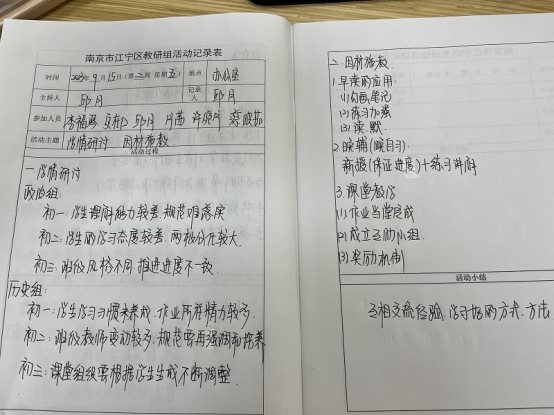 南京市江宁区教研组活动记录表
时间 2023年9月15日(第二周 星期五) 地点 办公室
主持人 邱月 记录人 邱月
参加人员 邱月
活动主题 学情研讨 因材施教
活动过程
一.学情研讨
政治组:
初一:学生理解能力较差,规范难落实
初二:学生的学习态度较差,两极分化较大.
初三:班级风格不同,推进进度不一致.
历史组:
初一:学生学习习惯未养成,作业所花精力较多.
初二:班级教师变动较多,规范需再强调和培养
初三:课堂组织要根据学生生成不断调整.
二.因材施教
1.早读的应用:
(1)勾画笔记
(2)练习加强
(3)读、默
2.晚辅(晚自习)
新授(保证进度)+练习讲解
3.课堂教学
(1)作业当堂完成
(2)成立互助小组.
(3)奖励机制
活动小结
互相交流经验,学习好的方式、方法